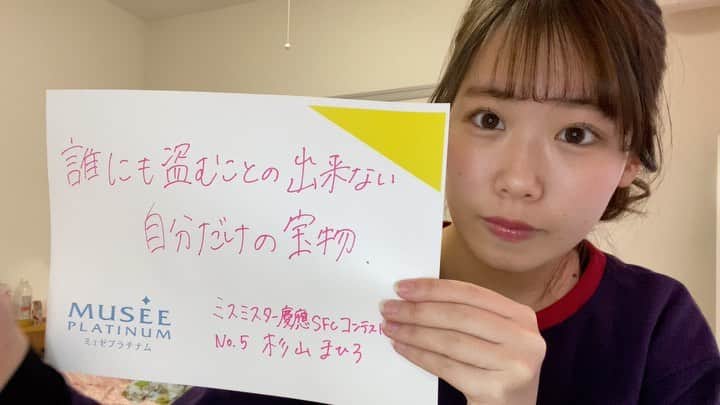 誰にも盗むことの出来ない
自分だけの宝物.
MUSÉE
PLATINUM
ミュゼプラチナム
ミスミスター慶應SFCコンテスト
No.5 杉山まひろ